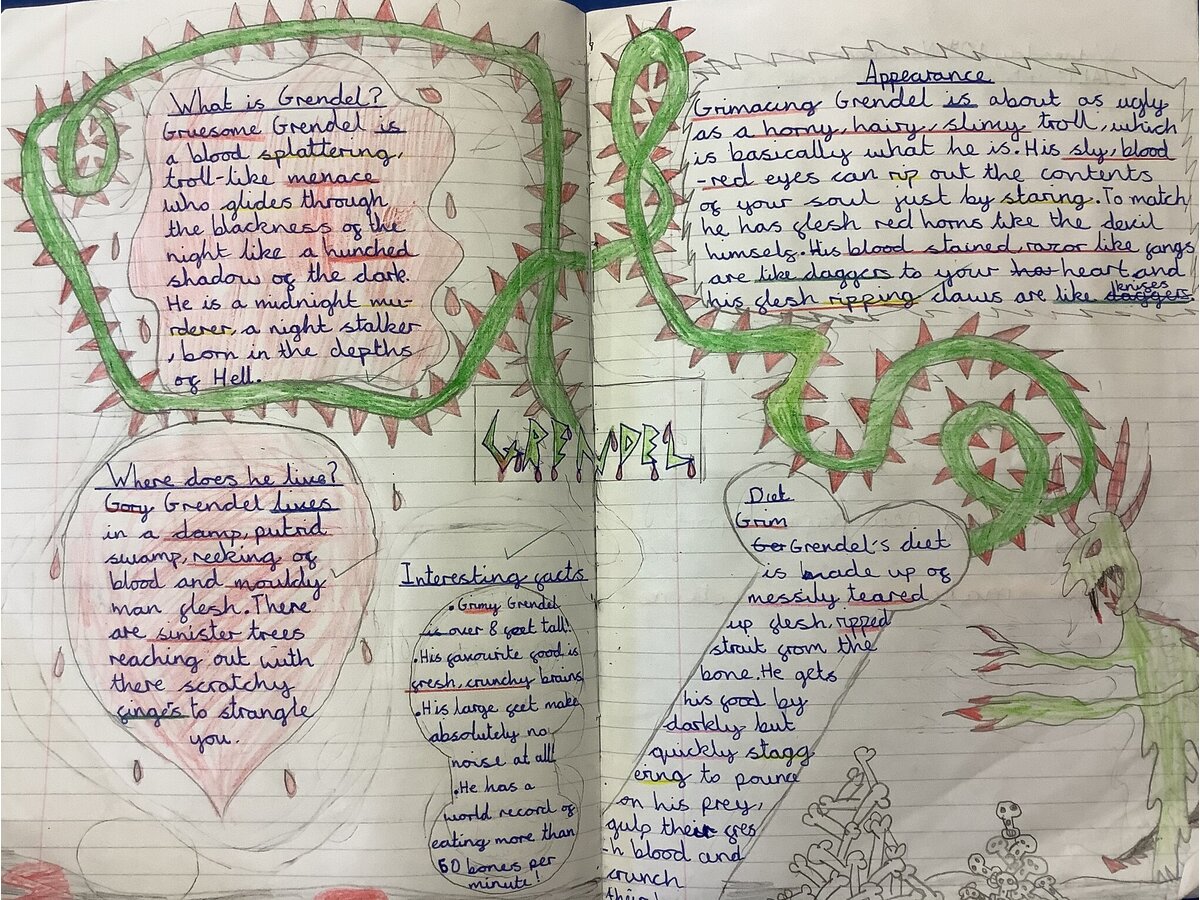 What is Grendel?
Gruesome Grendel is
a blood splattering,
troll-like menace
who glides through
the blackness of the
night like a hunched
shadow of the dark.
He is a midnight mu-
rderer, a night stalker
, born in the depths
of Hell.
Where does he live?
Gory Grendel lives
in a damp, putrid
swamp, reeking of
blood and mouldy
man flesh. There
are sinister trees
reaching out with
there scratchy
finges to strangle
you.
Interesting facts
. Grimy Grendel
is over 8 feet tall!
. His favourite food is
fresh, crunchy brains
. His large feet make
absolutely no
noise at all!
. He has a
world record of
eating more than
50 bones per
minute!
GRENDEL
Appearance
Grimacing Grendel is about as ugly
as a horny, hairy, slimy troll, which
is basically what he is. His sly, blood
-red eyes can rip out the contents
of your soul just by staring. To match
he has flesh red horns like the devil
himself. His blood stained, razor like fangs
are like daggers to your heart and
knifes
his flesh ripping claws are like daggers
Diet
Grim
Ger Grendel's diet
is made up of
messily teared
up flesh, ripped
strait from the
bone. He gets
his food by
darkly but
quickly stagg
ering to pounce
on his prey,
gulp their fres
-h blood and
crunch
their